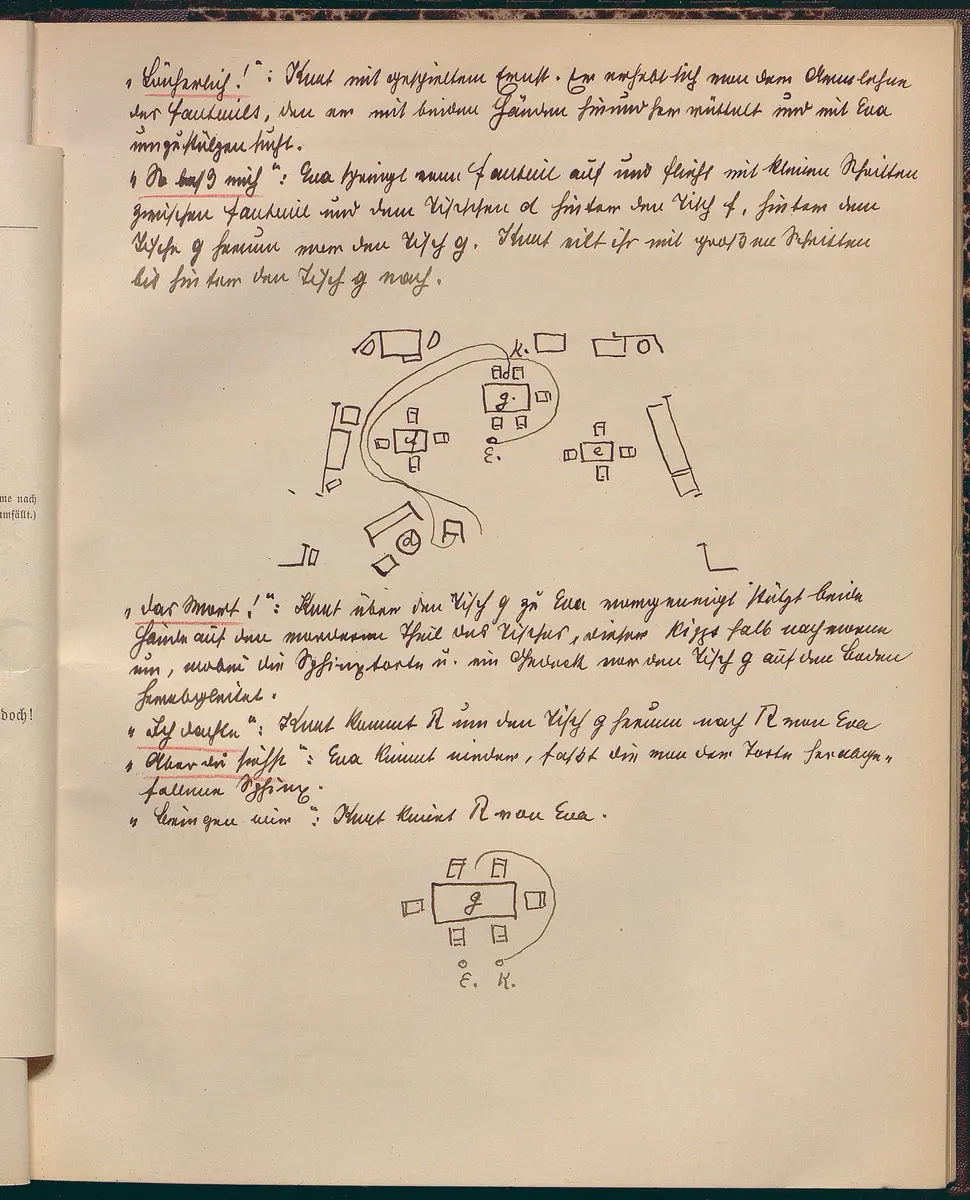 „Lächerlich!“: Knut mit gespieltem Ernst. Er erhebt sich von dem Armlehne
des Fauteuils, den er mit beiden Händen hin und her rüttelt und mit Eva
umzustülpen sucht.
„So laß mich“: Eva springt vom Fauteuil auf und flieht mit kleinen Schritten
zwischen Fauteuil und dem Tischchen d hinter den Tisch f, hinter dem
Tische g herum vor den Tisch g. Knut eilt ihr mit großen Schritten
bis hinter den Tisch g nach.
K.
g.
f
E.
e
d
me nach
mfällt.)
„das Wort!“: Knut über den Tisch g zu Eva vorgeneigt stützt beide
Hände auf den vorderen Theil des Tisches, dieser kippt halb nach vorne
um, wobei die Sphinxtorte u. ein Gedeck vor den Tisch g auf den Boden
herabgleitet.
doch!
„Ich dachte“: Knut kommt R um den Tisch g herum nach R von Eva
„Aber du siehst“: Eva kniet nieder, faßt die von der Torte herabge-
fallene Sphinx.
„bringen wir“: Knut kniet R von Eva.
g
E. K.